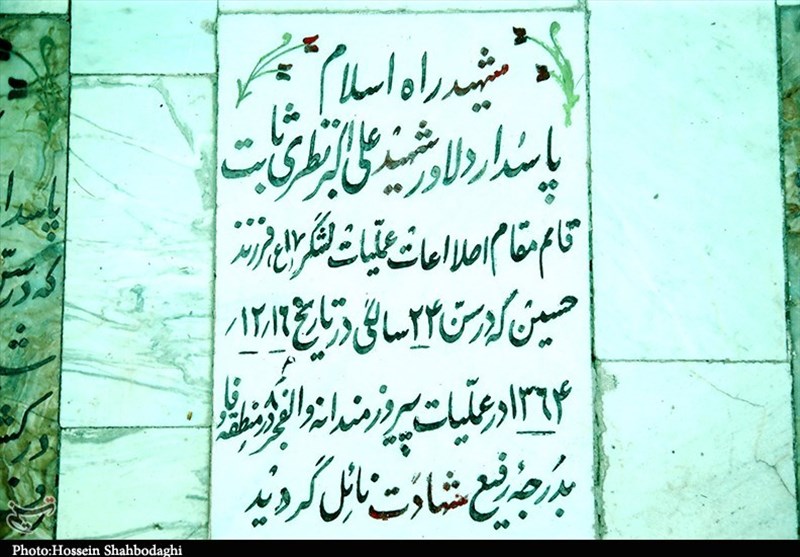 شهید راه اسلام
پاسدار دلاور شهید علی اکبر نظری ثابت
قائم مقام اطلاعات عملیات لشگر ۱۷ (ع) فرزند
حسین که در سن ۲۴ سالگی در تاریخ ۱۲٫۱۶٫
۱۳۶۴ در عملیات پیروزمندانه والفجر ۸ در منطقه فاو
بدرجهٔ رفیع شهادت نائل گردید
پاسدا
که در سن
در
Photo:Hossein Shahbodaghi